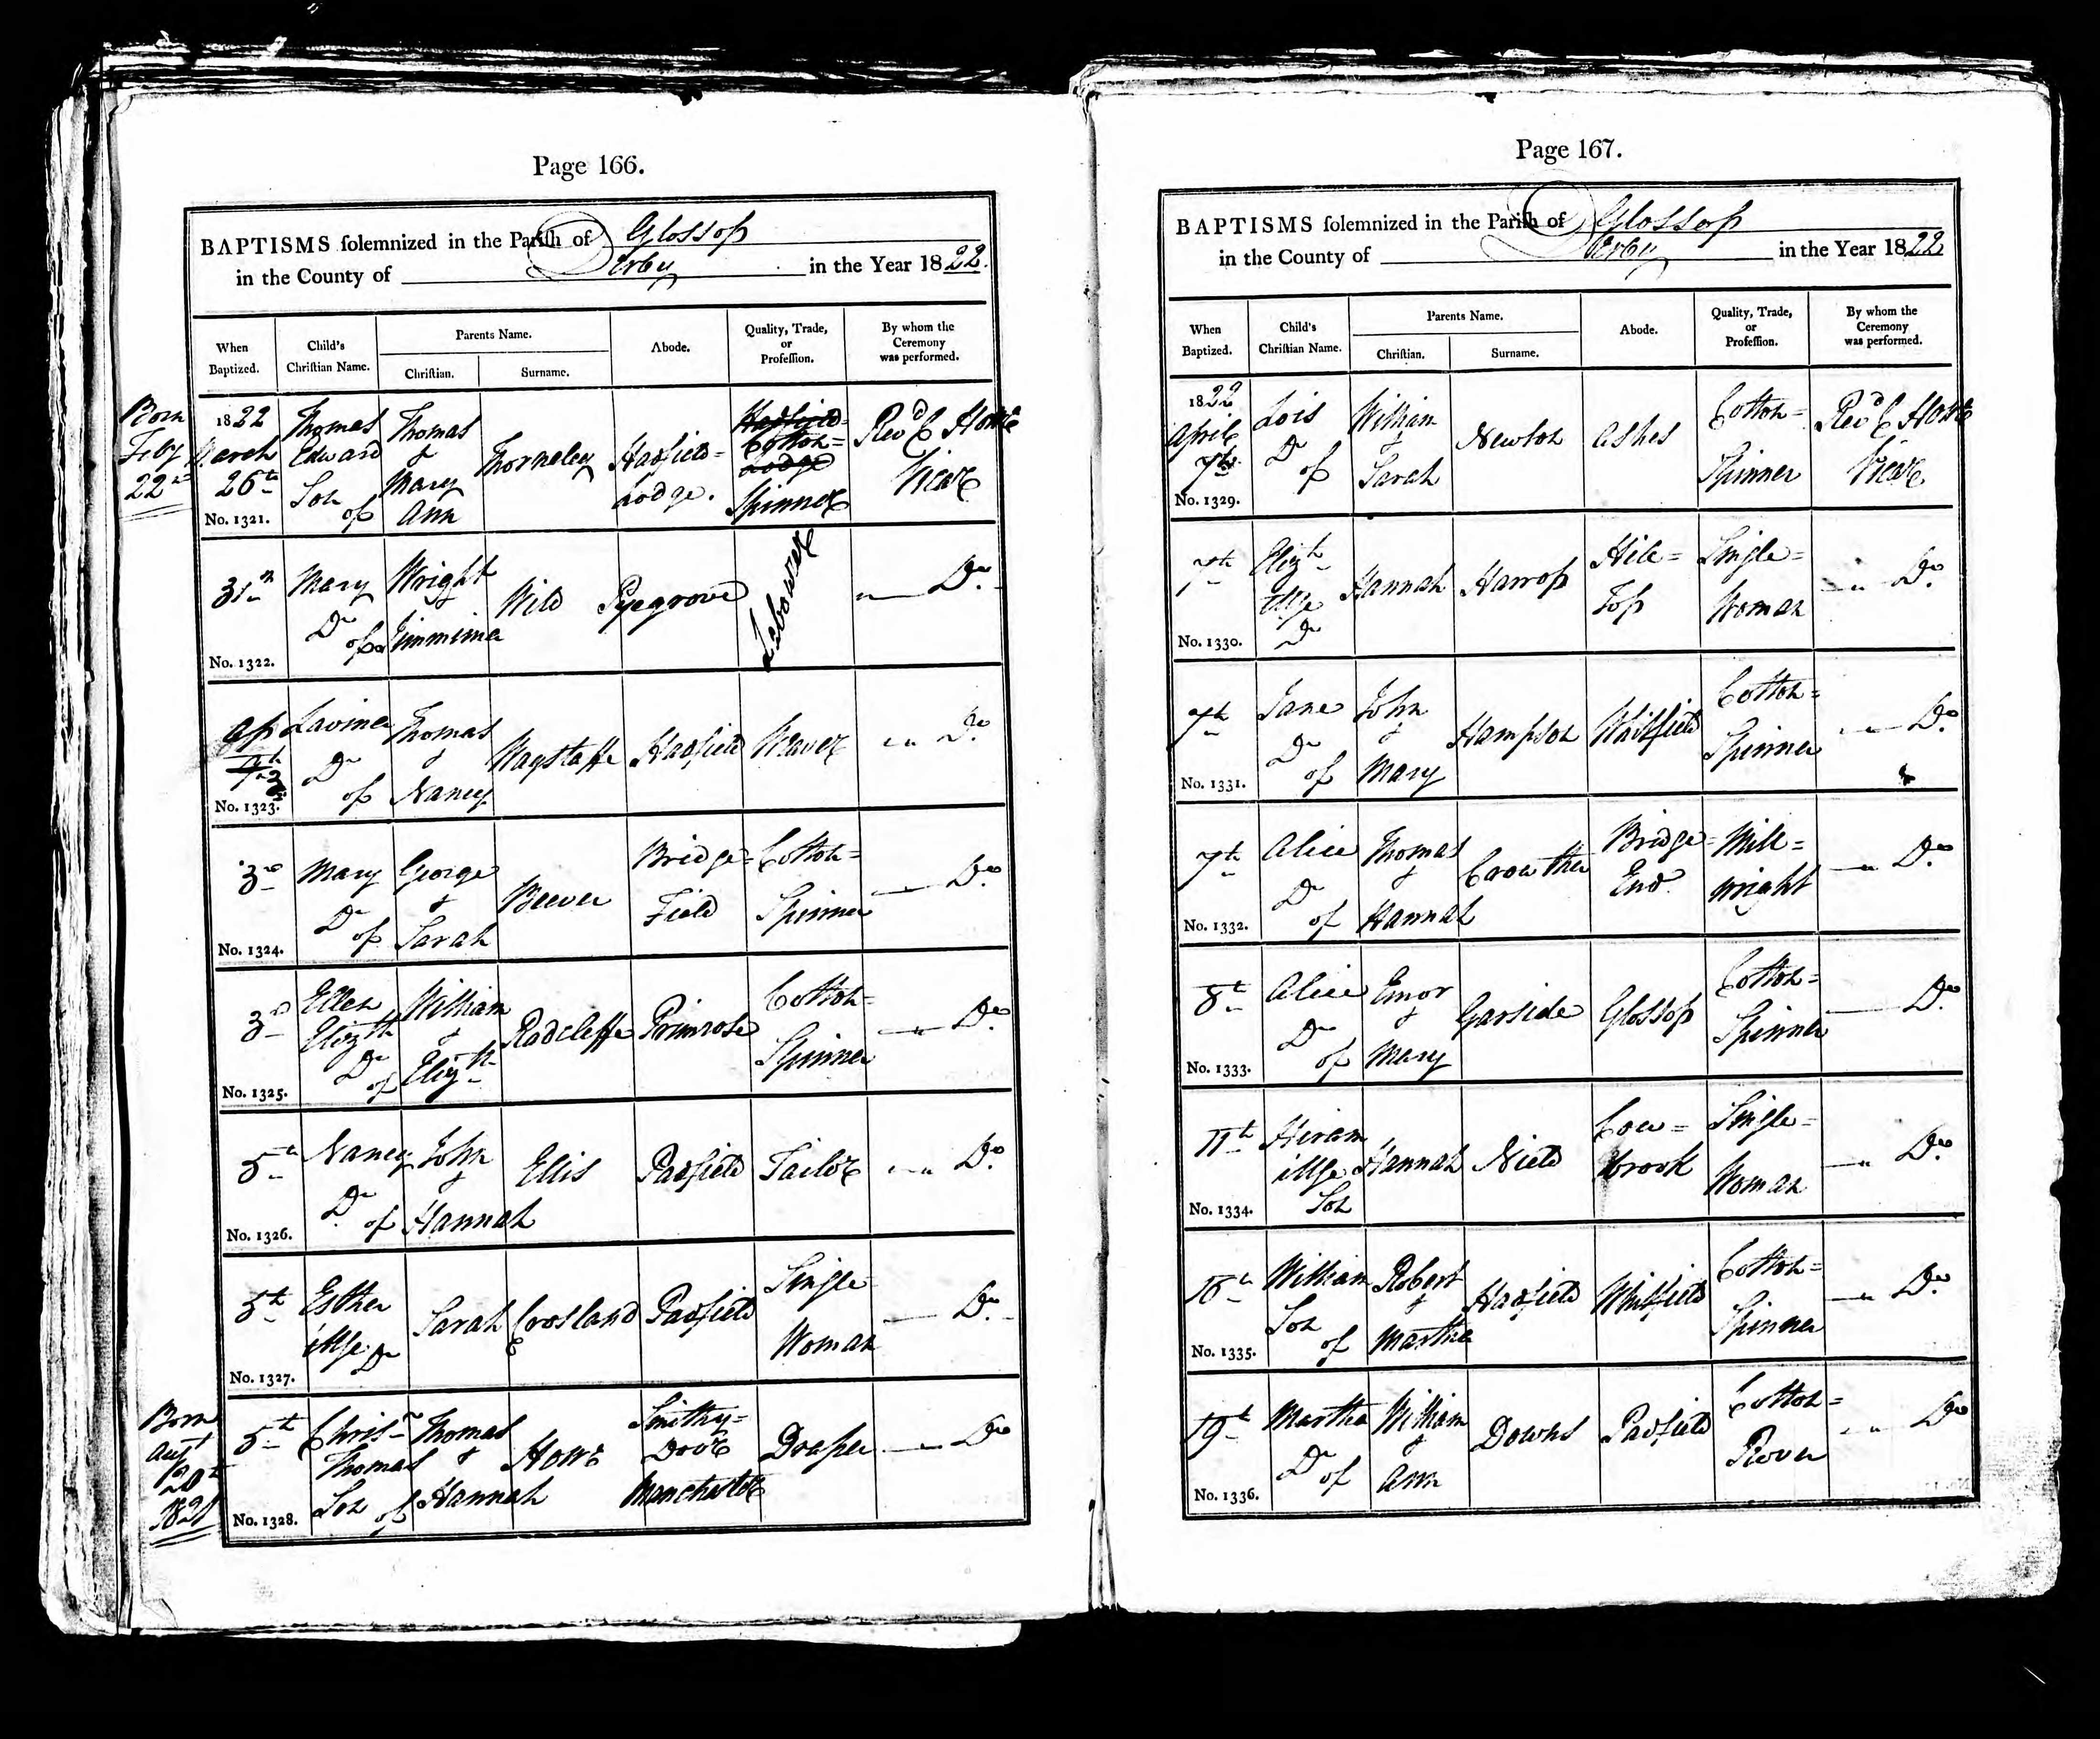 Page 166.
BAPTISMS solemnized in the Parish of Glossop
in the County of Derby in the Year 1822.
When Baptized. Child's Christian Name. Parents Name. Christian. Surname. Abode. Quality, Trade, or Profession. By whom the Ceremony was performed.
Born Feby 22nd
1822 March 26th Thomas Edward Son of Thomas & Mary Ann Thorneley Hadfield= Lodge. Hadfield= Cotton= Lodge Spinner Revd C Howe Vicar
No. 1321.
31st Mary Dr of Wright & Jimmima Wild Pyegrove Labourer — Do.
No. 1322.
Ap 7th 3 Lavinia Dr of Thomas & Nancy Wagstaffe Hadfield Weaver — Do
No. 1323.
3rd Mary Dr of George & Sarah Beever Bridge= Field Cotton= Spinner — Do.
No. 1324.
3d Ellen Elizth Dr of William & Elizth Radcliffe Primrose Cotton= Spinner — Do.
No. 1325.
5th Nancy Dr of John & Hannah Ellis Padfield Tailor — Do.
No. 1326.
5th Esther illge Dr Sarah Crosland Padfield Single= Woman — Do.
No. 1327.
Born Augt 20th 1821
5th Chrisr Thomas Son of Thomas & Hannah Howe Smithy= Door Manchester Draper — Do
No. 1328.
Page 167.
BAPTISMS solemnized in the Parish of Glossop
in the County of Derby in the Year 1822
When Baptized. Child's Christian Name. Parents Name. Christian. Surname. Abode. Quality, Trade, or Profession. By whom the Ceremony was performed.
1822 April 7th Lois Dr of William & Sarah Newton Ashes Cotton= Spinner Revd C Howe Vicar
No. 1329.
7th Elizth illge Dr Hannah Harrop Hill= Top Single= Woman — Do.
No. 1330.
7th Jane Dr of John & Mary Hampson Whitfield Cotton= Spinner — Do.
No. 1331.
7th Alice Dr of Thomas & Hannah Crowther Bridge= End. Mill= wright — Do.
No. 1332.
8th Alice Dr of Emor & Mary Garside Glossop Cotton= Spinner — Do.
No. 1333.
11th Hiram illge Son Hannah Nield Cow= brook Single= Woman — Do.
No. 1334.
18th William Son of Robert & Martha Hadfield Whitfield Cotton= Spinner — Do.
No. 1335.
19th Martha Dr of William & Ann Downs Padfield Cotton= Rover — Do
No. 1336.